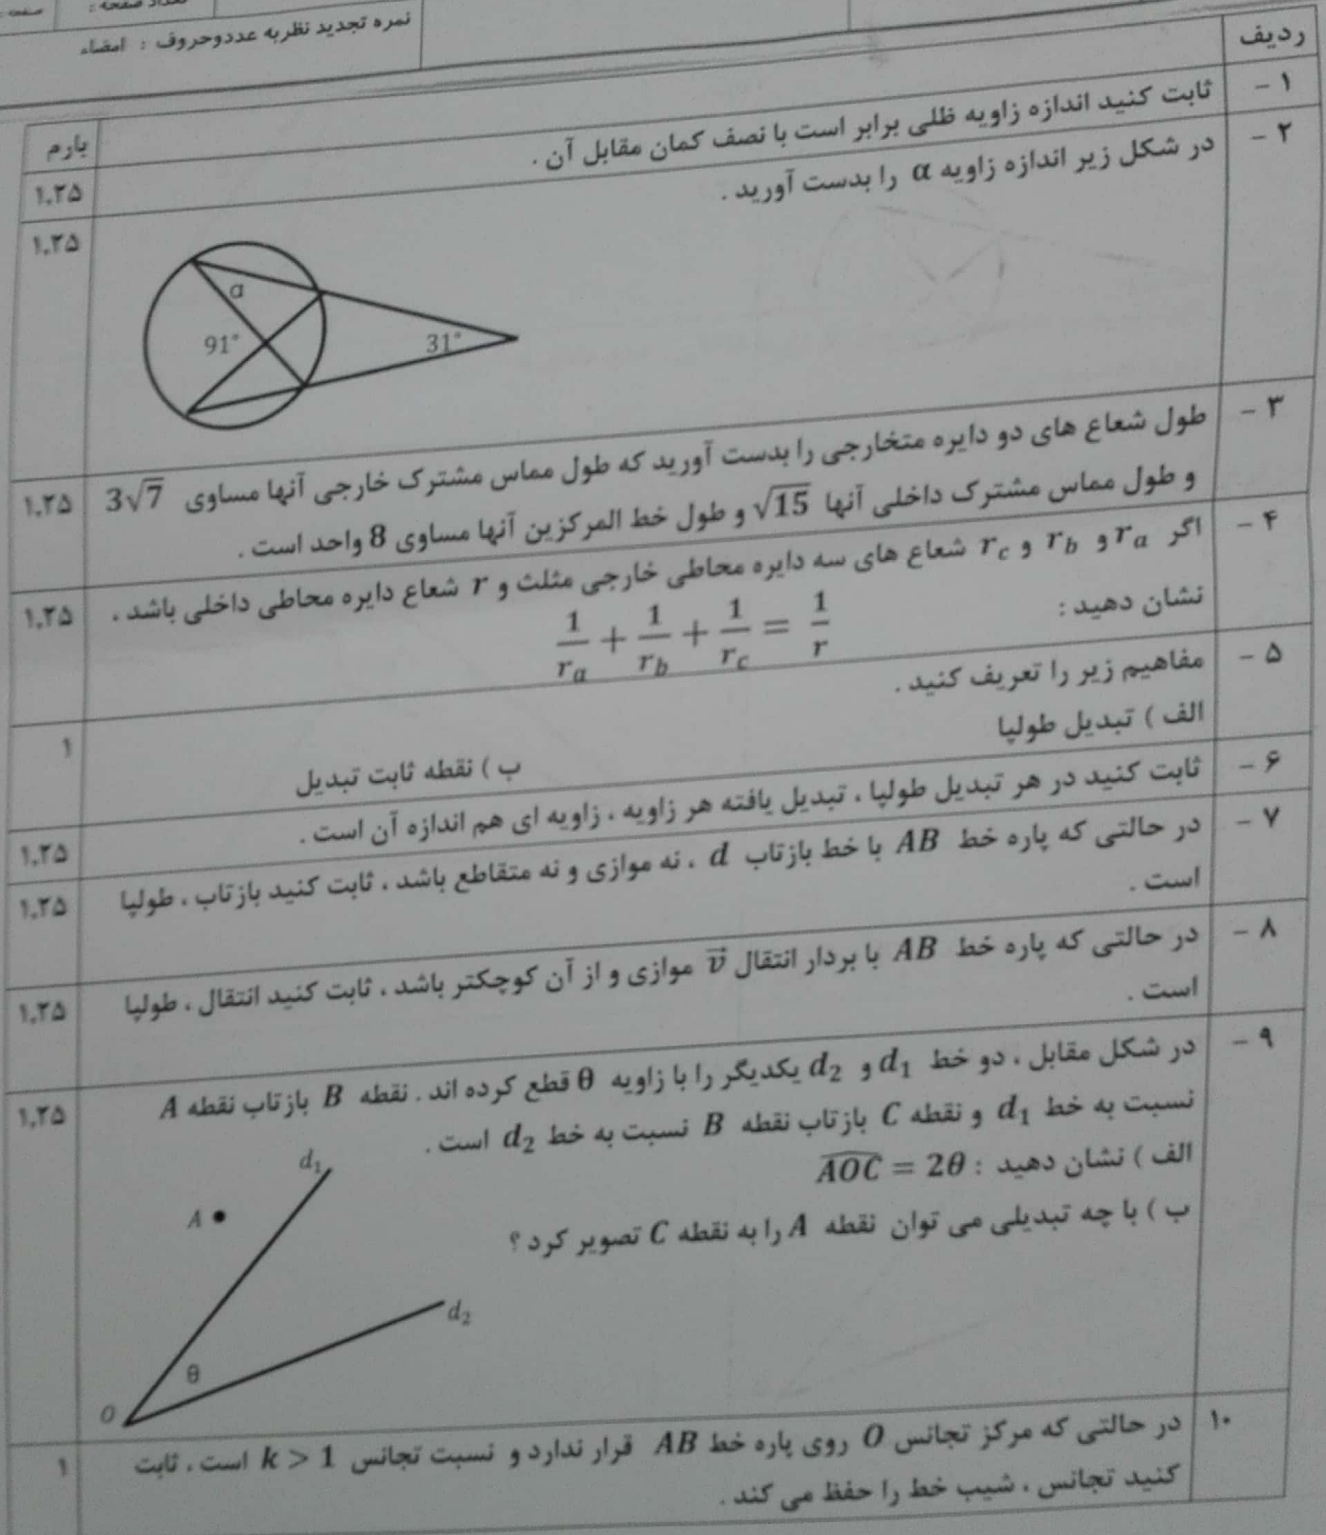 تعداد صفحه :
صفحه :
نمره تجدید نظربه عددوحروف : امضاء
ردیف
بارم
۱ - ثابت کنید اندازه زاویه ظلی برابر است با نصف کمان مقابل آن . ۱.۲۵
۲ - در شکل زیر اندازه زاویه α را بدست آورید . ۱.۲۵
α
91°
31°
۳ - طول شعاع های دو دایره متخارجی را بدست آورید که طول مماس مشترک خارجی آنها مساوی 3√7 ۱.۲۵
و طول مماس مشترک داخلی آنها √15 و طول خط المرکزین آنها مساوی 8 واحد است .
۴ - اگر r_a و r_b و r_c شعاع های سه دایره محاطی خارجی مثلث و r شعاع دایره محاطی داخلی باشد . ۱.۲۵
نشان دهید :
1/r_a + 1/r_b + 1/r_c = 1/r
۵ - مفاهیم زیر را تعریف کنید . ۱
الف ) تبدیل طولپا
ب ) نقطه ثابت تبدیل
۶ - ثابت کنید در هر تبدیل طولپا ، تبدیل یافته هر زاویه ، زاویه ای هم اندازه آن است . ۱.۲۵
۷ - در حالتی که پاره خط AB با خط بازتاب d ، نه موازی و نه متقاطع باشد ، ثابت کنید بازتاب ، طولپا ۱.۲۵
است .
۸ - در حالتی که پاره خط AB با بردار انتقال v⃗ موازی و از آن کوچکتر باشد ، ثابت کنید انتقال ، طولپا ۱.۲۵
است .
۹ - در شکل مقابل ، دو خط d₁ و d₂ یکدیگر را با زاویه θ قطع کرده اند . نقطه B بازتاب نقطه A ۱.۲۵
نسبت به خط d₁ و نقطه C بازتاب نقطه B نسبت به خط d₂ است .
الف ) نشان دهید : AOC = 2θ
ب ) با چه تبدیلی می توان نقطه A را به نقطه C تصویر کرد ؟
d₁
A
d₂
θ
O
۱۰ در حالتی که مرکز تجانس O روی پاره خط AB قرار ندارد و نسبت تجانس k > 1 است ، ثابت ۱
کنید تجانس ، شیب خط را حفظ می کند .